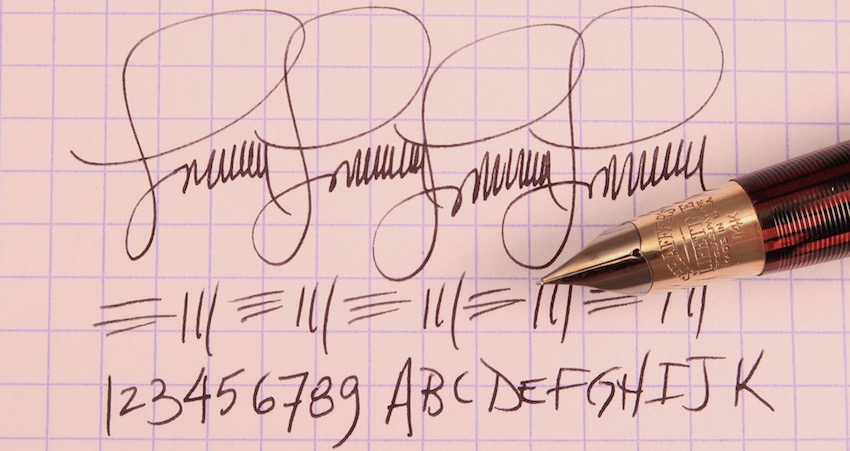 SHEAFFER'S
LIFETIME
MADE IN U.S.A.
14K
123456789 ABCDEFGHIJK